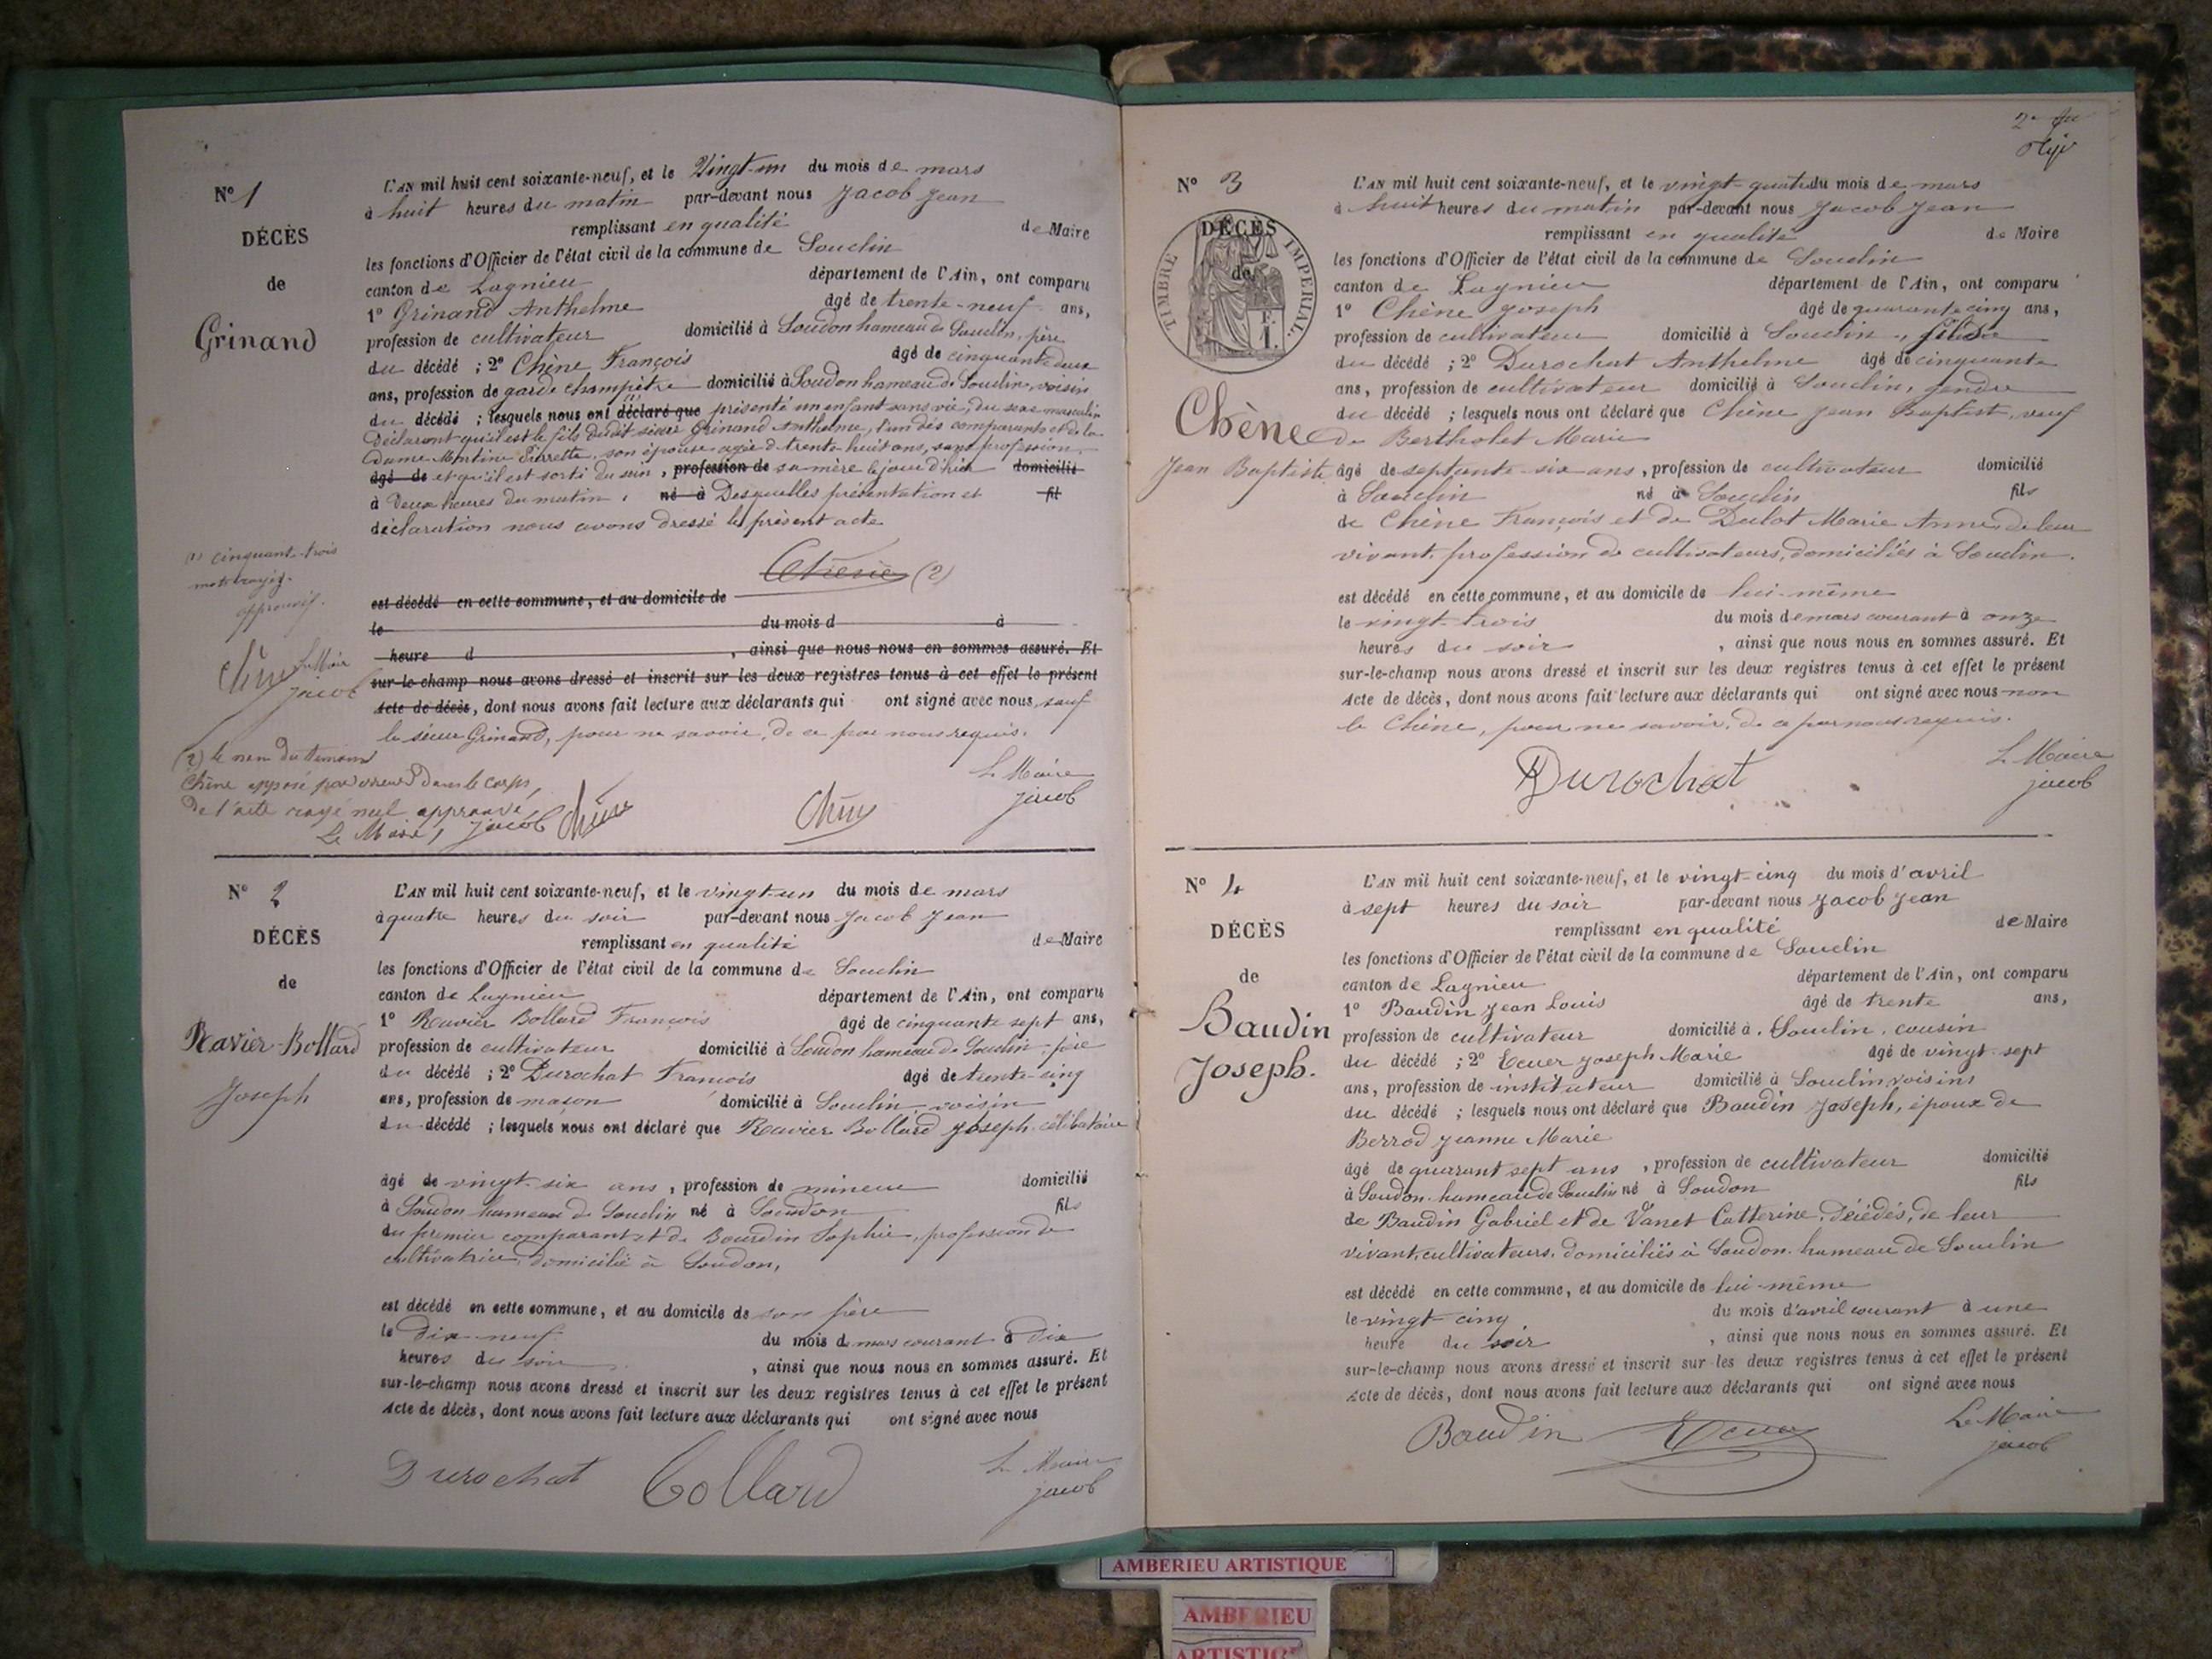 N° 1
DÉCÈS
de
Grinand
L'AN mil huit cent soixante-neuf, et le Vingt-un du mois de mars
à huit heures du matin par-devant nous Jacob Jean
remplissant en qualité de Maire
les fonctions d'Officier de l'état civil de la commune de Souclin
canton de Lagnieu département de l'Ain, ont comparu
1° Grinand Anthelme âgé de trente-neuf ans,
profession de cultivateur domicilié à Soudon hameau de Souclin, père
du décédé ; 2° Chêne François âgé de cinquante deux
ans, profession de garde champêtre domicilié à Soudon hameau de Souclin, voisin
du décédé ; lesquels nous ont déclaré que présenté un enfant sans vie, du sexe masculin
Déclarant qu'il est le fils dudit sieur Grinand Anthelme, l'un des comparants et de la
Dame Martine Pierrette, son épouse agée de trente huit ans, sans profession,
âgé de et qu'il est sorti du sein, profession de sa mère le jour d'hier domicilié
à Deux heures du matin, né à Desquelles présentation et fil
déclaration nous avons dressé le présent acte
Chêne (2)
est décédé en cette commune, et au domicile de
le du mois d à
heure d , ainsi que nous nous en sommes assuré. Et
sur-le-champ nous avons dressé et inscrit sur les deux registres tenus à cet effet le présent
Acte de décès, dont nous avons fait lecture aux déclarants qui ont signé avec nous, sauf
le sieur Grinand, pour ne savoir, de ce par nous requis.
(1) cinquant-trois
mots rayés.
approuvés.
Chêne Le Maire
jacob
(2) le nom du témoin
Chêne apposé par erreur dans le corps,
De l'acte rayé nul approuvé,
Le Maire, Jacob Chêne
Chêne
Le Maire
jacob
N° 2
DÉCÈS
de
Ravier-Bollard
Joseph
L'AN mil huit cent soixante-neuf, et le vingt-un du mois de mars
à quatre heures du soir par-devant nous Jacob Jean
remplissant en qualité de Maire
les fonctions d'Officier de l'état civil de la commune de Souclin
canton de Lagnieu département de l'Ain, ont comparu
1° Ravier Bollard François âgé de cinquante sept ans,
profession de cultivateur domicilié à Soudon hameau de Souclin, père
du décédé ; 2° Durochat François âgé de trente-cinq
ans, profession de maçon domicilié à Souclin voisin
du décédé ; lesquels nous ont déclaré que Ravier Bollard Joseph, célibataire
âgé de vingt-six ans, profession de mineur domicilié
à Soudon hameau de Souclin né à Soudon fils
du premier comparant et de Bourdin Sophie, profession de
cultivatrice, domicilié à Soudon,
est décédé en cette commune, et au domicile de son père
le Dix-neuf du mois de mars courant à Dix
heures du soir , ainsi que nous nous en sommes assuré. Et
sur-le-champ nous avons dressé et inscrit sur les deux registres tenus à cet effet le présent
Acte de décès, dont nous avons fait lecture aux déclarants qui ont signé avec nous
Durochat Bollard
Le Maire
jacob
N° 3
TIMBRE IMPERIAL
DÉCÈS
de
F.
1.
Chêne
Jean Baptiste
L'AN mil huit cent soixante-neuf, et le vingt-quatre du mois de mars
à huit heures du matin par-devant nous Jacob Jean
remplissant en qualité de Maire
les fonctions d'Officier de l'état civil de la commune de Souclin
canton de Lagnieu département de l'Ain, ont comparu
1° Chêne Joseph âgé de quarante cinq ans,
profession de cultivateur domicilié à Souclin, fils
du décédé ; 2° Durochat Anthelme âgé de cinquante
ans, profession de cultivateur domicilié à Souclin, gendre
du décédé ; lesquels nous ont déclaré que Chêne Jean Baptist, veuf
de Bertholet Marie
âgé de septante-six ans, profession de cultivateur domicilié
à Souclin né à Souclin fils
de Chêne François et de Dulot Marie Anne, de leur
vivant, profession de cultivateurs, domiciliés à Souclin.
est décédé en cette commune, et au domicile de lui-même
le vingt-trois du mois de mars courant à onze
heures du soir , ainsi que nous nous en sommes assuré. Et
sur-le-champ nous avons dressé et inscrit sur les deux registres tenus à cet effet le présent
Acte de décès, dont nous avons fait lecture aux déclarants qui ont signé avec nous non
le Chêne, pour ne savoir, de ce par nous requis.
Durochat
Le Maire
jacob
N° 4
DÉCÈS
de
Baudin
Joseph.
L'AN mil huit cent soixante-neuf, et le vingt-cinq du mois d'avril
à sept heures du soir par-devant nous Jacob Jean
remplissant en qualité de Maire
les fonctions d'Officier de l'état civil de la commune de Souclin
canton de Lagnieu département de l'Ain, ont comparu
1° Baudin Jean Louis âgé de trente ans,
profession de cultivateur domicilié à Souclin, cousin
du décédé ; 2° Ecuer Joseph Marie âgé de vingt-sept
ans, profession de instituteur domicilié à Souclin, voisins
du décédé ; lesquels nous ont déclaré que Baudin Joseph, époux de
Berrod Jeanne Marie
âgé de quarant sept ans, profession de cultivateur domicilié
à Soudon. hameau de Souclin né à Soudon fils
de Baudin Gabriel et de Vanet Catterine, décédés, de leur
vivant, cultivateurs, domiciliés à Soudon. hameau de Souclin
est décédé en cette commune, et au domicile de lui-même
le vingt cinq du mois d'avril courant à une
heure du soir , ainsi que nous nous en sommes assuré. Et
sur-le-champ nous avons dressé et inscrit sur les deux registres tenus à cet effet le présent
Acte de décès, dont nous avons fait lecture aux déclarants qui ont signé avec nous
Baudin Ecuer
Le Maire
jacob
AMBERIEU ARTISTIQUE
AMBERIEU
ARTISTIQUE